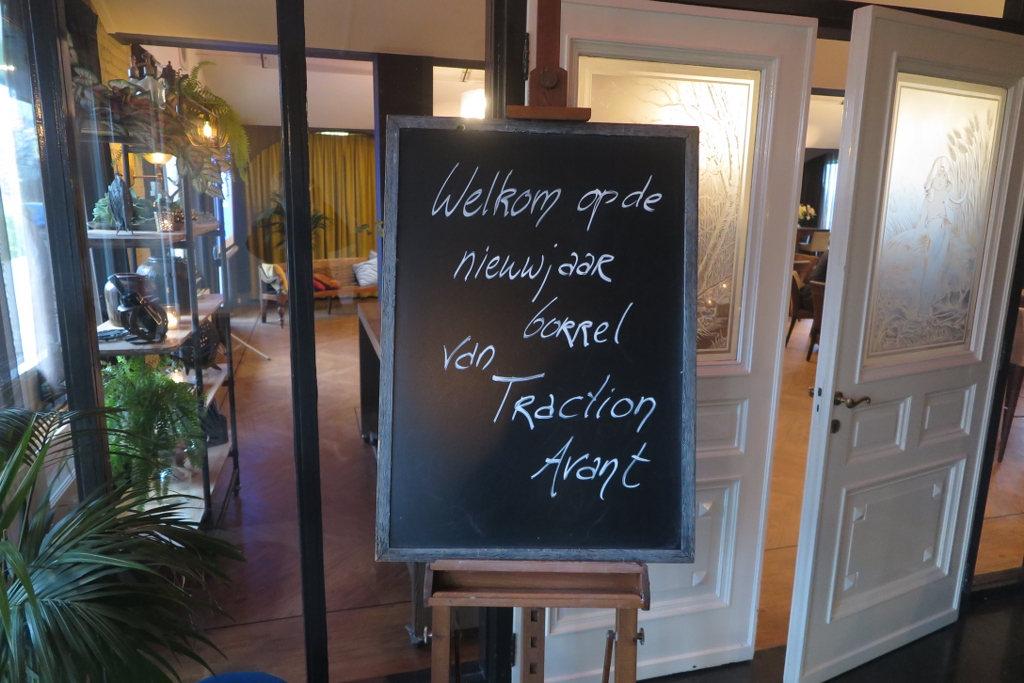 Welkom op de
nieuwjaar
borrel
van
Traction
Avant